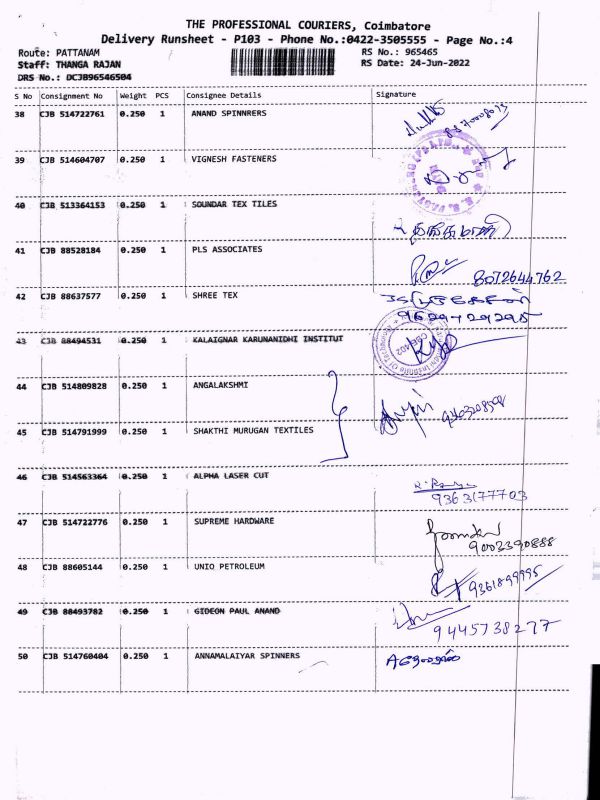 THE PROFESSIONAL COURIERS, Coimbatore
Delivery Runsheet - P103 - Phone No.:0422-3505555 - Page No.:4
Route: PATTANAM RS No.: 965465
Staff: THANGA RAJAN RS Date: 24-Jun-2022
DRS No.: DCJB96546504
S No Consignment No Weight PCS Consignee Details Signature
38 CJB 514722761 0.250 1 ANAND SPINNRERS
39 CJB 514604707 0.250 1 VIGNESH FASTENERS
40 CJB 513364153 0.250 1 SOUNDAR TEX TILES
41 CJB 88528184 0.250 1 PLS ASSOCIATES
8072644762
42 CJB 88637577 0.250 1 SHREE TEX
43 CJB 88494531 0.250 1 KALAIGNAR KARUNANIDHI INSTITUT
44 CJB 514809828 0.250 1 ANGALAKSHMI
45 CJB 514791999 0.250 1 SHAKTHI MURUGAN TEXTILES
46 CJB 514563364 0.250 1 ALPHA LASER CUT
9363177703
47 CJB 514722776 0.250 1 SUPREME HARDWARE
9003390888
48 CJB 88605144 0.250 1 UNIQ PETROLEUM
9361899995
49 CJB 88493782 0.250 1 GIDEON PAUL ANAND
9445738277
50 CJB 514760404 0.250 1 ANNAMALAIYAR SPINNERS